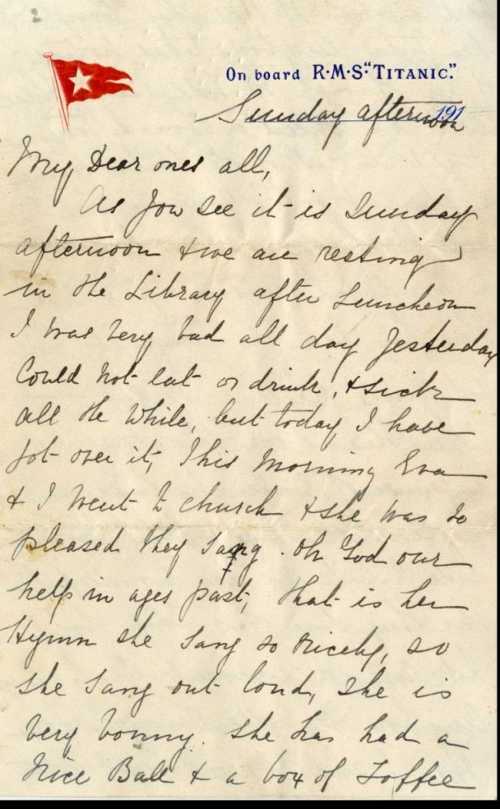 On board R·M·S "TITANIC."
191
Sunday afternoon
My Dear ones all,
As you see it is Sunday
afternoon & we are resting
in the Library after Luncheon
I was very bad all day Yesterday
Could not eat or drink, & sick
all the while, but today I have
got over it, This morning Eva
& I went to church & she was so
pleased they sang. Oh God our
help in ages past, that is her
Hymn she sang so nicely, so
she sang out loud, she is
very bonny. She has had a
nice Ball & a box of Toffee